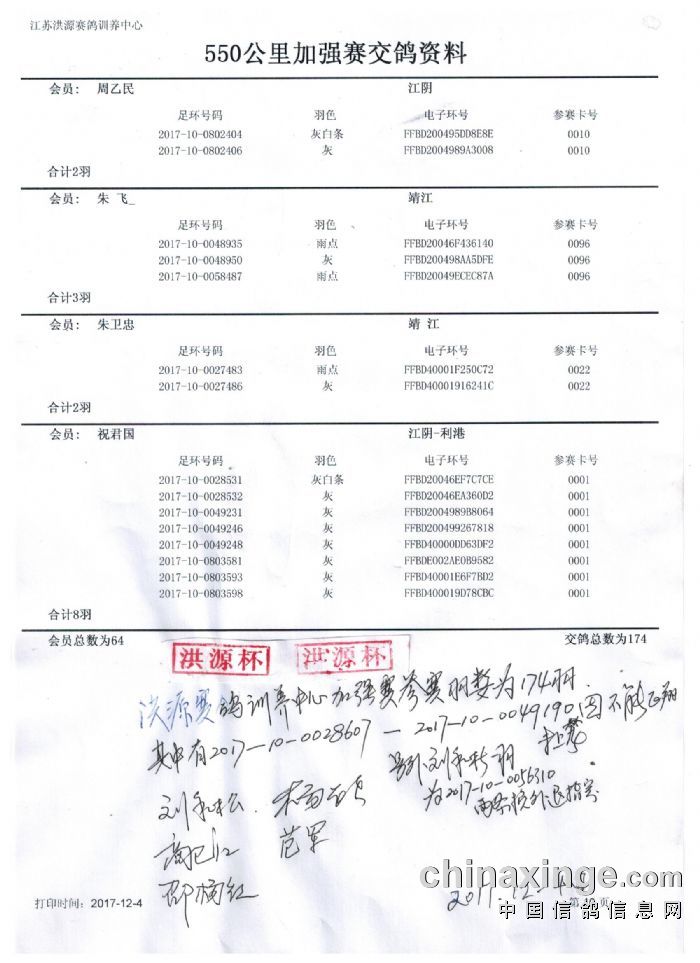 江苏洪源赛鸽训养中心
550公里加强赛交鸽资料
会员： 周乙民 江阴
足环号码 羽色 电子环号 参赛卡号
2017-10-0802404 灰白条 FFBD200495DD8E8E 0010
2017-10-0802406 灰 FFBD2004989A3008 0010
合计2羽
会员： 朱 飞_ 靖江
足环号码 羽色 电子环号 参赛卡号
2017-10-0048935 雨点 FFBD20046F436140 0096
2017-10-0048950 灰 FFBD200498AA5DFE 0096
2017-10-0058487 雨点 FFBD20049ECEC87A 0096
合计3羽
会员： 朱卫忠 靖 江
足环号码 羽色 电子环号 参赛卡号
2017-10-0027483 雨点 FFBD40001F250C72 0022
2017-10-0027486 灰 FFBD40001916241C 0022
合计2羽
会员： 祝君国 江阴-利港
足环号码 羽色 电子环号 参赛卡号
2017-10-0028531 灰白条 FFBD20046EF7C7CE 0001
2017-10-0028532 灰 FFBD20046EA360D2 0001
2017-10-0049231 灰 FFBD2004989B8064 0001
2017-10-0049246 灰 FFBD200499267818 0001
2017-10-0049248 灰 FFBD40000DD63DF2 0001
2017-10-0803581 灰 FFBDE002AE0B9582 0001
2017-10-0803593 灰 FFBD40001E6F7BD2 0001
2017-10-0803598 灰 FFBD400019D78CBC 0001
合计8羽
会员总数为64 交鸽总数为174
洪源杯 洪源杯
洪源赛鸽训养中心加强赛参赛羽数为174羽.
其中有2017-10-0028607 - 2017-10-0049190因不能正
另外刘和松 羽
为2017-10-0056310
刘和松
范军
邵楠红
2017-12-4
chinaxinge.com
打印时间：2017-12-4
中国信鸽信息网